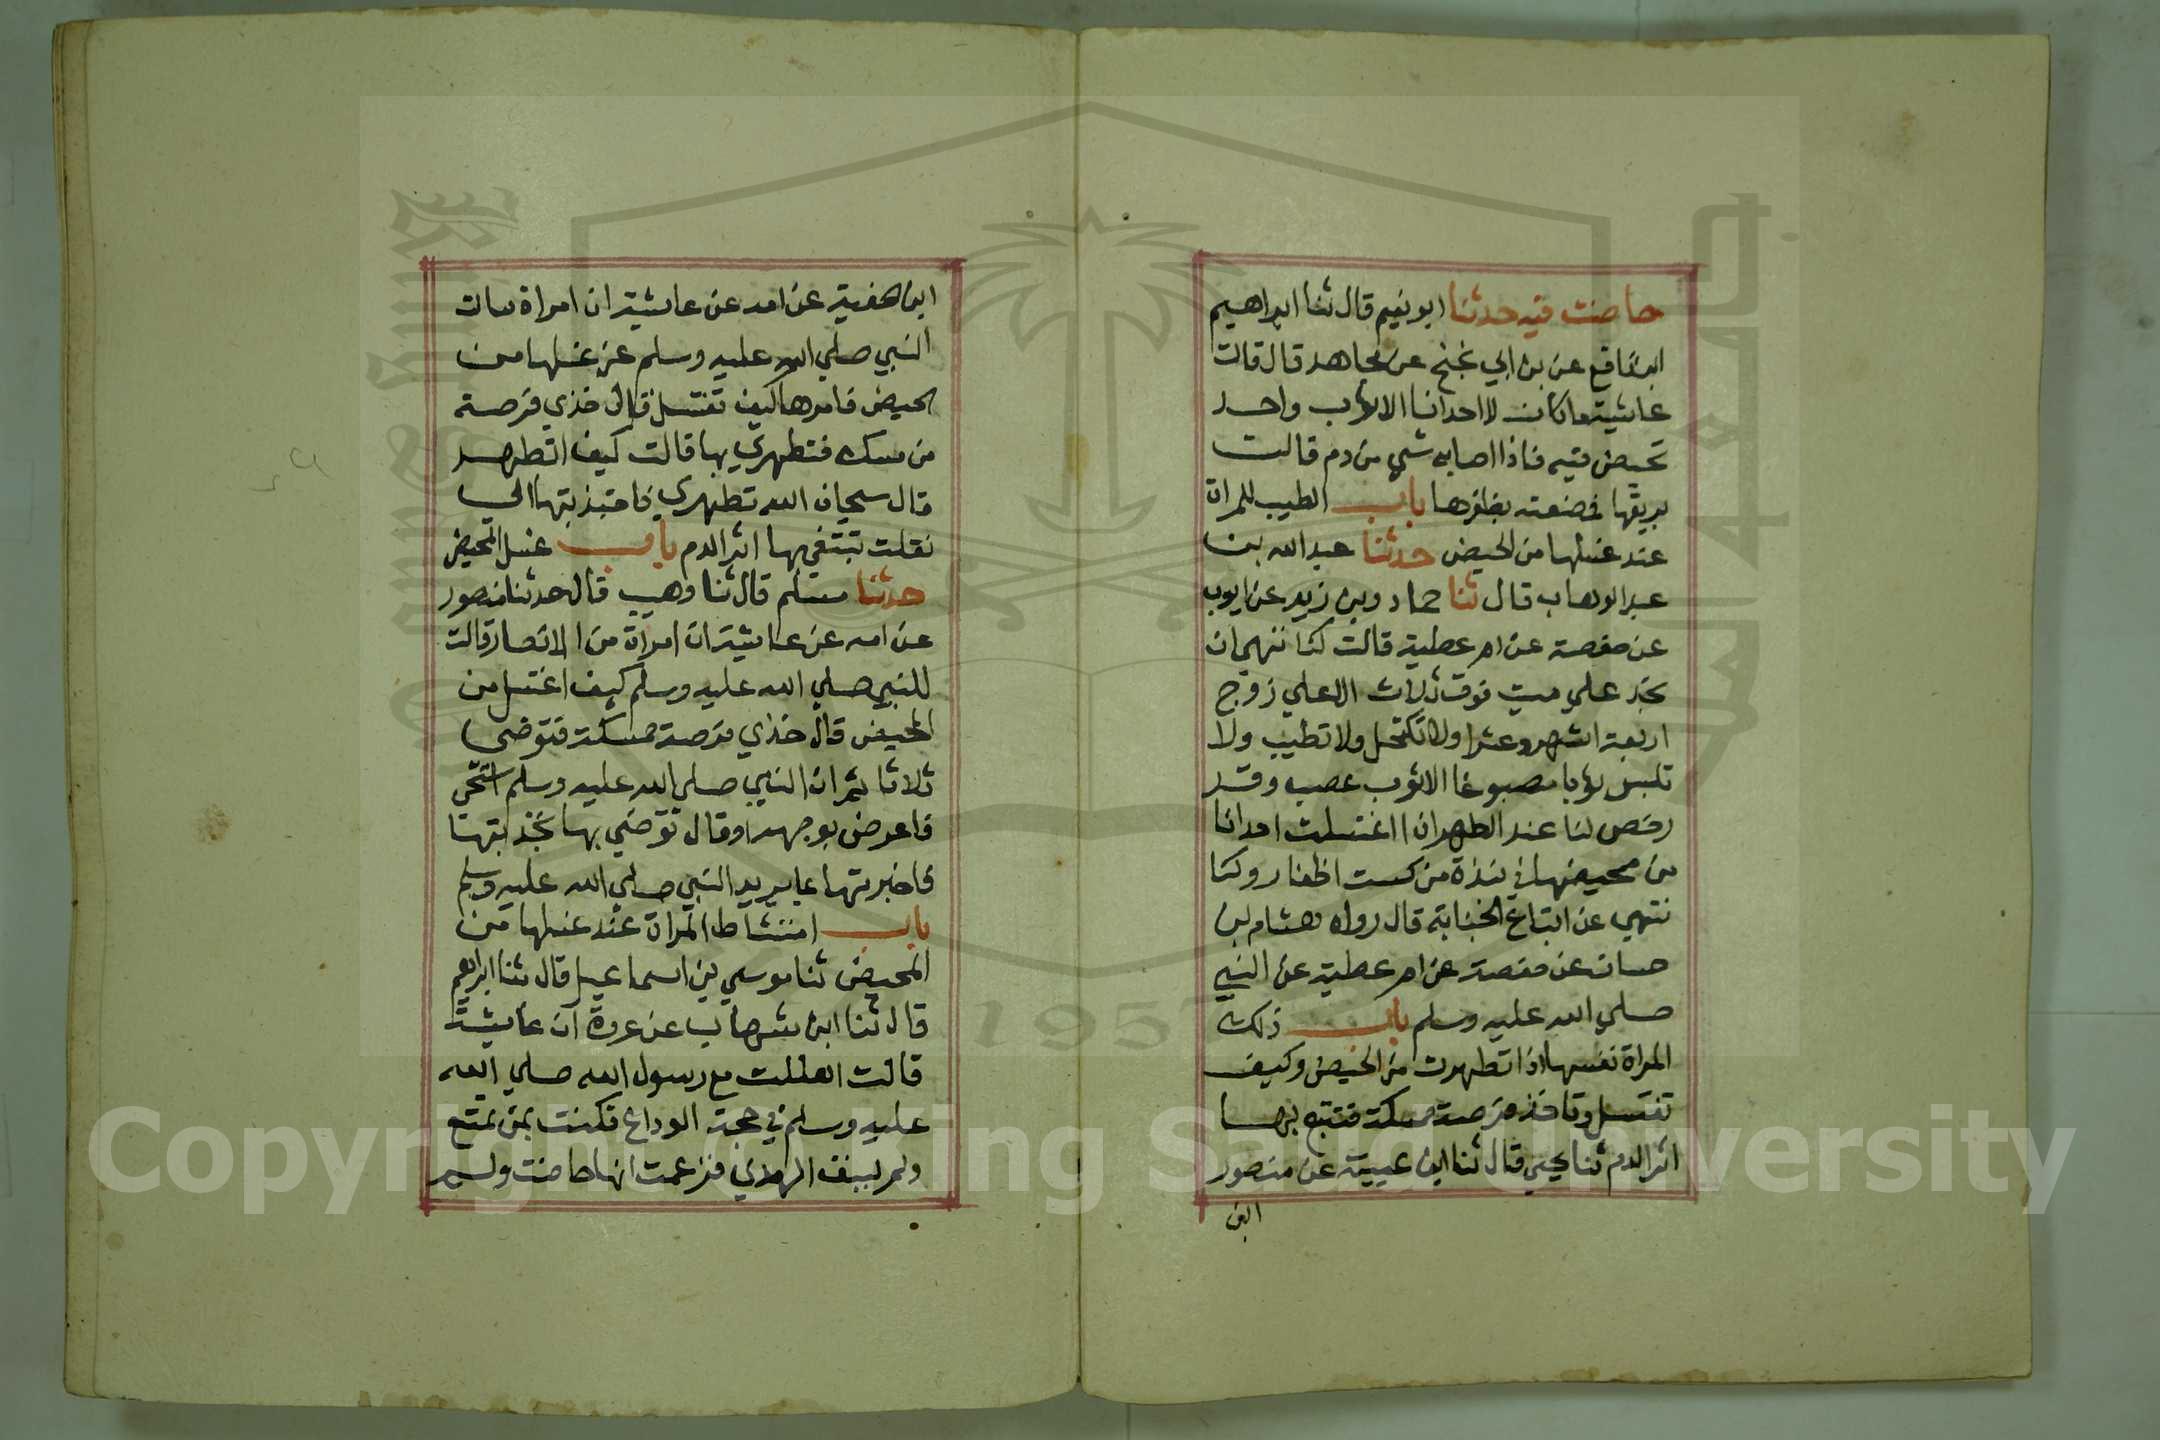 حاضت فيه حدثنا ابو نعيم قال ثنا ابراهيم
ابن نافع عن بن ابي نجيح عن مجاهد قال قالت
عائشة ما كانت لاحدانا الا ثوب واحد
تحيض فيه فاذا اصابه شي من دم قالت
بريقها فصعته بظفرها باب الطيب للمراة
عند غسلها من الحيض حدثنا عبد الله بن
عبد الوهاب قال ثنا حماد وبن زيد عن ايوب
عن حفصة عن ام عطية قالت كنا ننهي ان
نحد علي ميت فوق ثلاث الا علي زوج
اربعة اشهر وعشرا ولا تكتحل ولا تطيب ولا
تلبس ثوبا مصبوغا الا ثوب عصب وقد
رخص لنا عند الطهر ان اغتسلت احدانا
من محيضها في نبذة من كست اظفار وكنا
ننهي عن اتباع الجنابة قال رواه هشام بن
حسان عن حفصة عن ام عطية عن النبي
صلي الله عليه وسلم باب ذلك
المراة نفسها اذا تطهرت من الحيض وكيف
تغتسل وتاخذ فرصة ممسكة فتتبع بها
اثر الدم ثنا يحيي قال ثنا ابن عيينة عن منصور
ابن
ابن صفية عن امه عن عايشة ان امراة سالت
النبي صلي الله عليه وسلم عن غسلها من
الحيض فامرها كيف تغتسل قال خذي فرصة
من مسك فتطهري بها قالت كيف اتطهر
قال سبحان الله تطهري فاجتبذبتها الي
فقلت تبتغي بها اثر الدم باب غسل المحيض
حدثنا مسلم قال ثنا وهيب قال حدثنا منصور
عن امه عن عايشة ان امراة من الانصار قالت
للنبي صلي الله عليه وسلم كيف اغتسل من
المحيض قال خذي فرصة ممسكة فتوضي
ثلاثا ثم ان النبي صلي الله عليه وسلم استحي
فاعرض بوجهه او قال توضي بها فجذبتها
فاخبرتها بما يريد النبي صلي الله عليه وسلم
باب امتشاط المراة عند غسلها من
المحيض ثنا موسي بن اسماعيل قال ثنا ابراهيم
قال ثنا ابن شهاب عن عروة ان عايشة
قالت اهللت مع رسول الله صلي الله
عليه وسلم في حجة الوداع فكنت بمن تمتع
ولم يسق الهدي فزعمت انها حاضت ولم
Copyright © King Saud University
1957